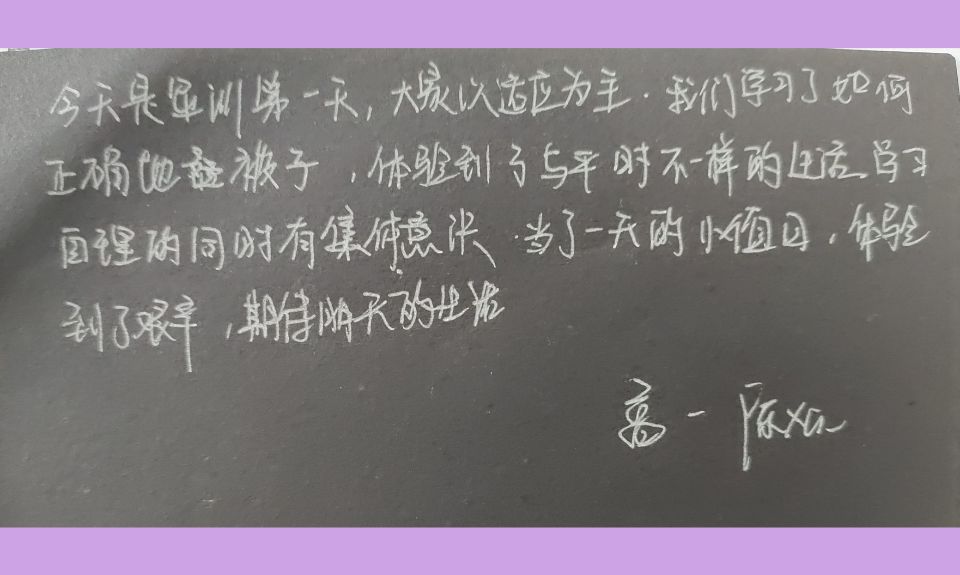 今天是军训第一天，大家以适应为主．我们学习了如何
正确地叠被子，体验到了与平时不一样的生活 学习
自理的同时有集体意识．当了一天的小值日，体验
到了艰辛，期待明天的生活
高一 陈